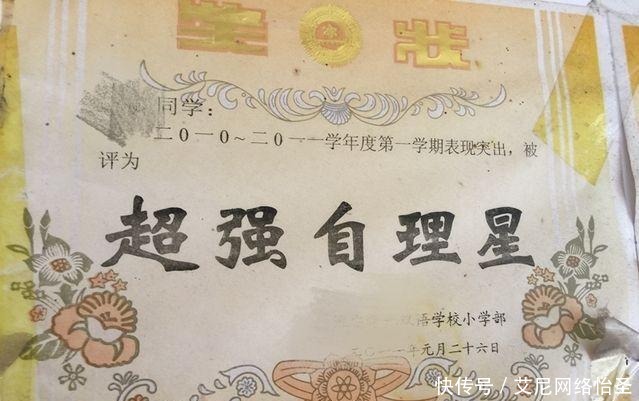 奖状
同学：
二０一０~二０一一学年度第一学期表现突出，被
评为
超强自理星
双语学校小学部
二０一一年元月二十六日
快传号／艾尼网络怡圣